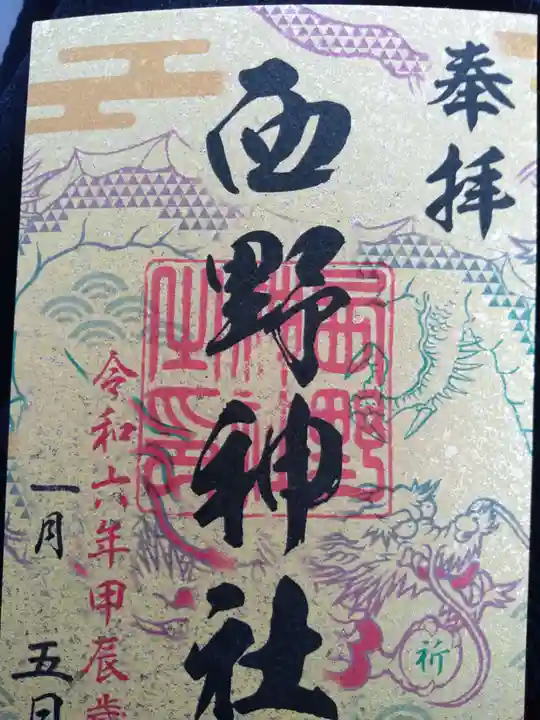 奉拝
西野神社
西野神社之印
令和六年甲辰歳
一月五日
祈